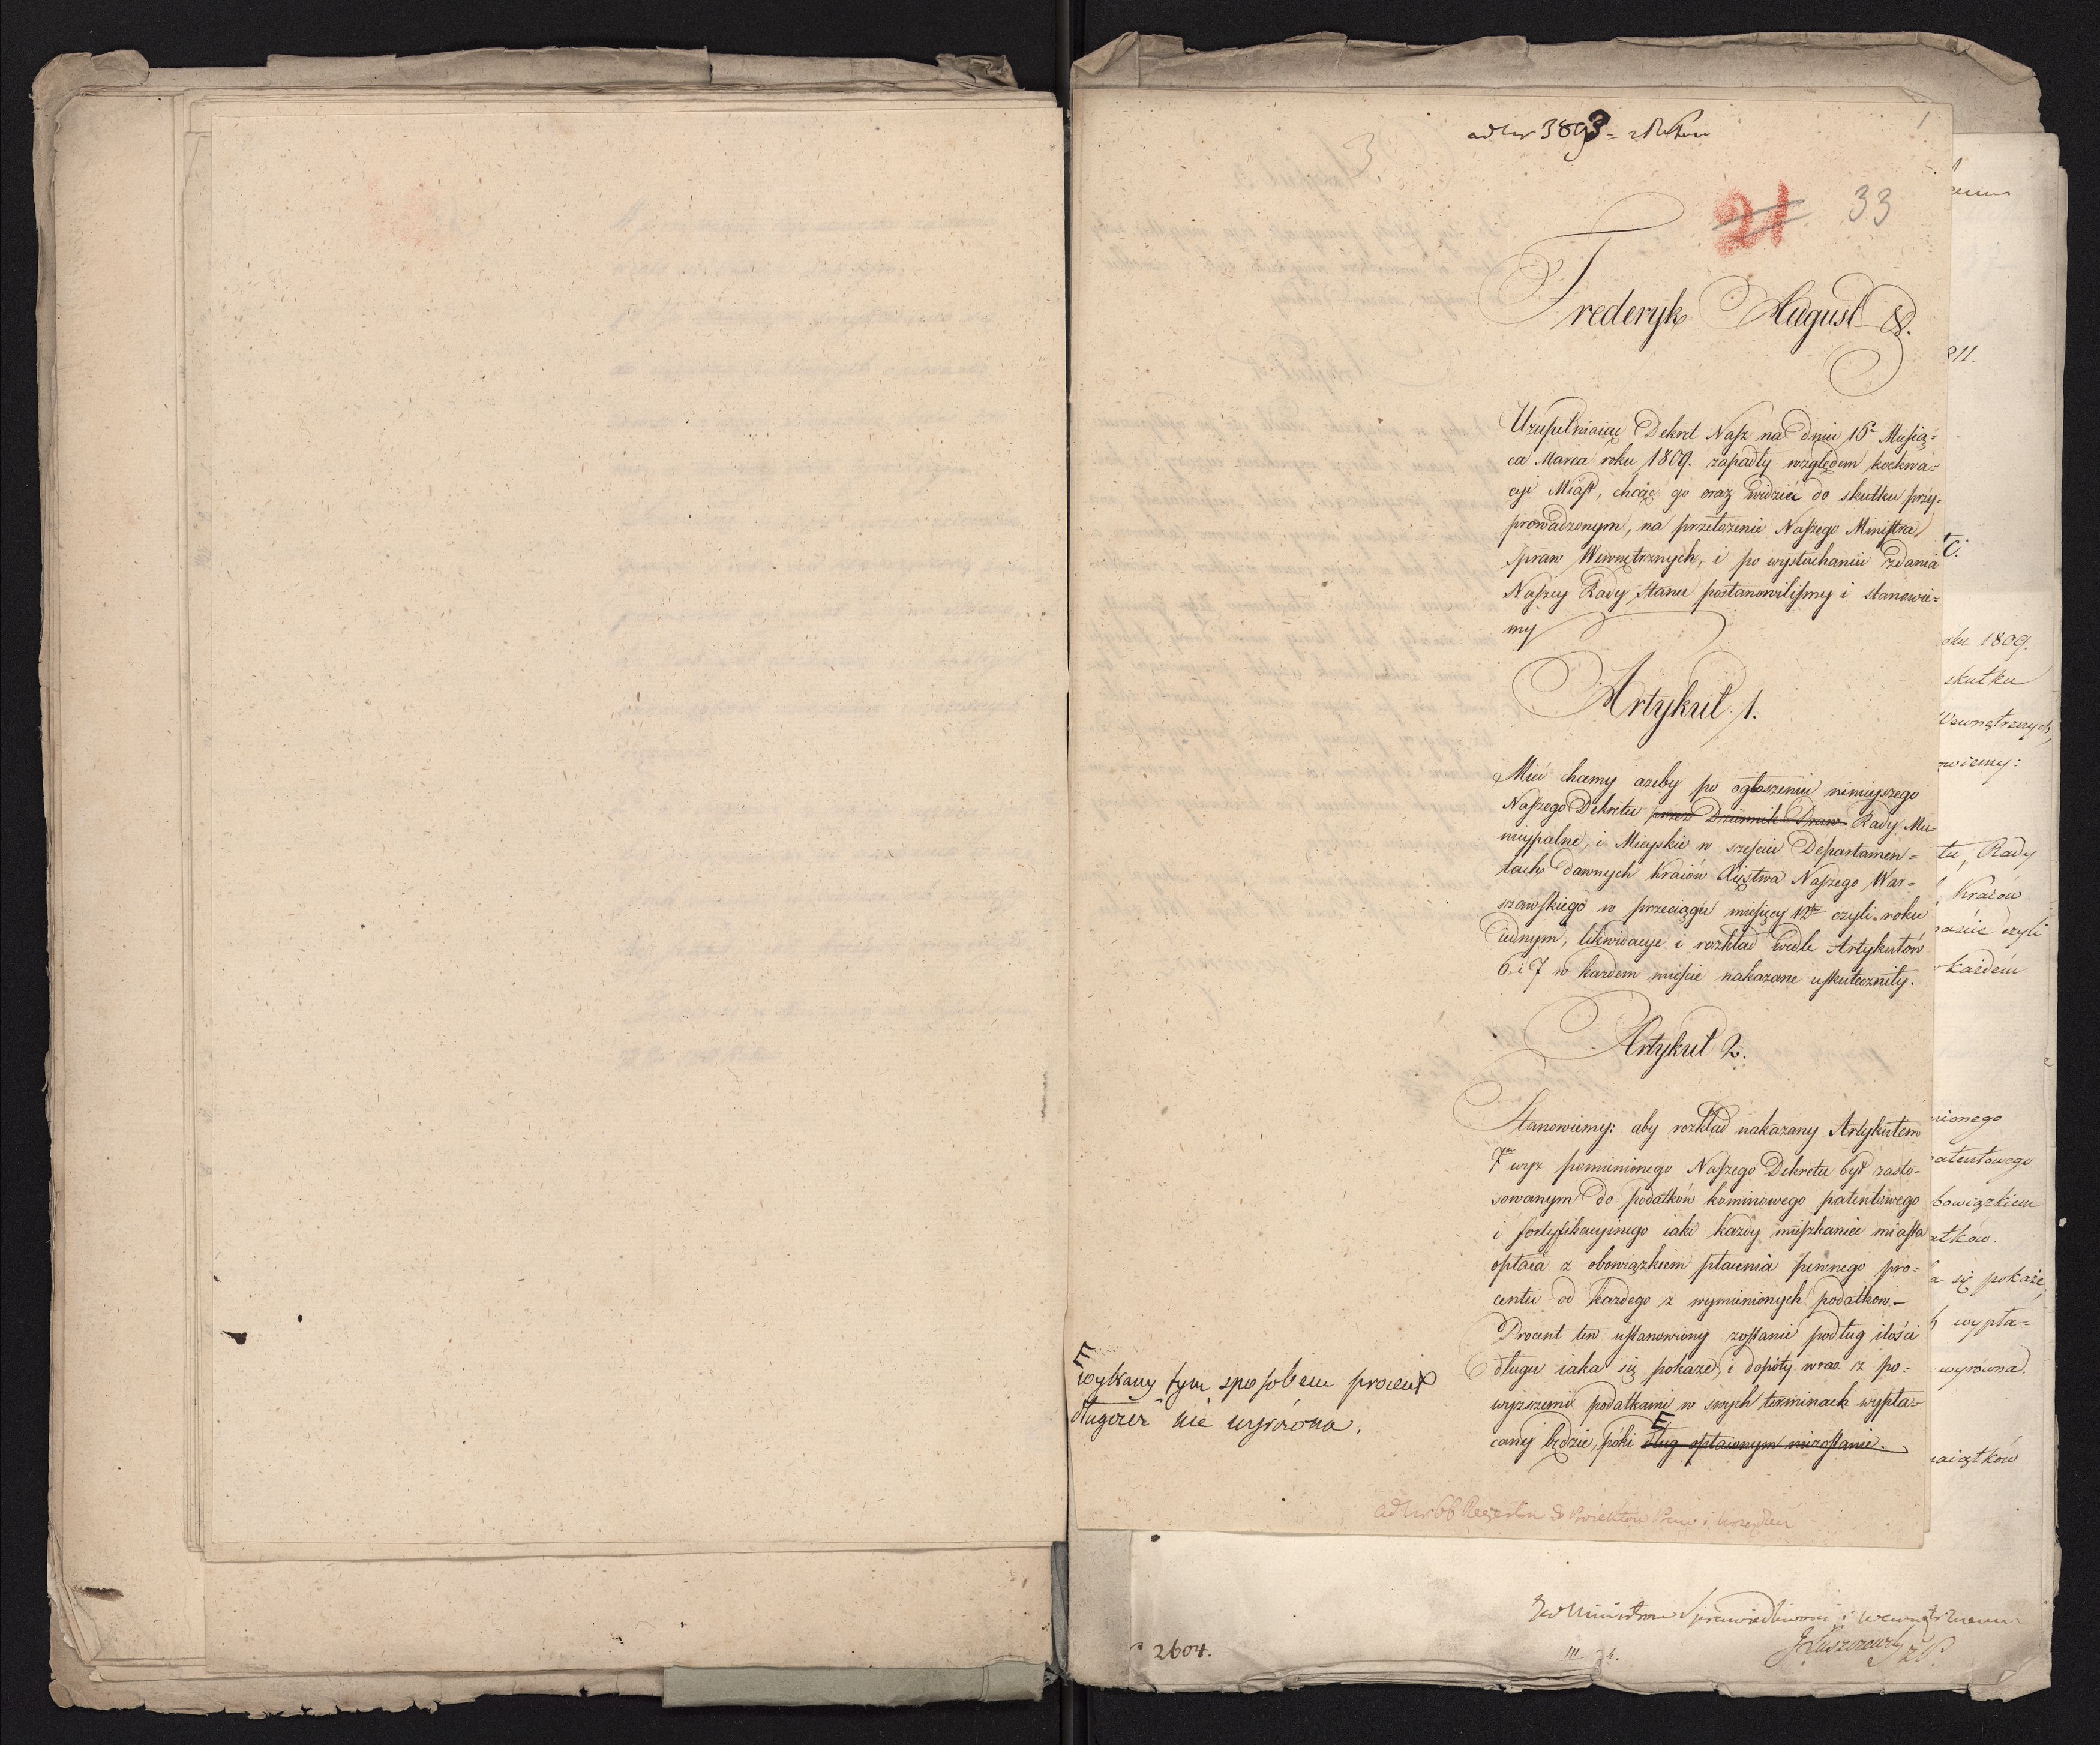 ad Nr 3893
21 33
Frederyk August &.
Uzupełniaiąc Dekret Nasz na dniu 16º Miesią=
ca Marca roku 1809. zapadły względem koekwa=
cyi Miast, chcąc go oraz widzieć do skutku przy=
prowadzonym, na przełożenie Naszego Ministra
Spraw Wewnętrznych, i po wysłuchaniu zdania
Naszey Rady Stanu postanowiliśmy i stanowie=
my
Artykuł 1.
Mieć chcemy ażeby po ogłoszeniu ninieyszego
Naszego Dekretu przez Dziennik Praw Rady Mu=
nicypalne, i Mieyskie w sześciu Departamen=
tach dawnych Kraiów Xięstwa Naszego War=
szawskiego w przeciągu miesięcy 12tu czyli roku
iednym, likwidacye i rozkład wedle Artykułów
6. i 7 w każdem mieście nakazane uskuteczniły.
Artykuł 2.
Stanowiemy: aby rozkład nakazany Artykułem
7m wyż pomienionego Naszego Dekretu był zasto=
sowanym do podatków kominowego patentowego
i fortyfikacyinego iaki każdy mieszkaniec miasta
opłaca z obowiązkiem płacenia pewnego pro=
centu od każdego z wymienionych podatkow.-
Procent ten ustanowiony zostanie podług ilości
długu iaka się pokaże, i dopóty wraz z po=
wyższemi podatkami w swych terminach wypła=
cany będzie, póki dług opłaconym niezostanie.
wybrany tym sposobem procent
długów nie wyrówna.
ad Nr 66
811.
oku 1809.
skutku
Wewnętrznych,
owiemy:
tu, Rady
Kraiów
czyli
każdém
nionego
patentowego
bowiązkiem
atków.
a się pokaże,
wypła=
wyrówna.
maiątków
2604.